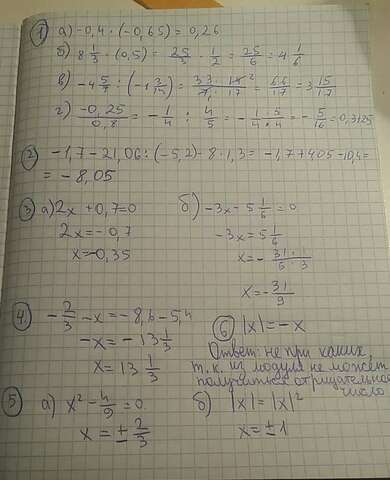 1) а) -0,4 · (-0,65) = 0,26
б) 8 1/3 · (0,5) = 25/3 · 1/2 = 25/6 = 4 1/6
в) -4 5/7 : (-1 3/14) = 33 · 14 ² / 7 · 17 = 66/17 = 3 15/17
г) -0,25/0,8 = - 1/4 : 4/5 = - 1·5/4·4 = - 5/16 = 0,3125
2) -1,7 - 21,06 : (-5,2) - 8 · 1,3 = -1,7 + 4,05 - 10,4 =
= -8,05
3) а) 2x + 0,7 = 0
2x = -0,7
x = -0,35
б) -3x - 5 1/6 = 0
-3x = 5 1/6
x = - 31 · 1 / 6 3
x = - 31/9
4. - 2/3 - x = -8,6 - 5,4
-x = -13 1/3
x = 13 1/3
6) |x| = -x
Ответ: не при каких,
т.к. из модуля не может
получиться отрицательное
число
5) а) x² - 4/9 = 0
x = ± 2/3
б) |x| = |x|²
x = ±1